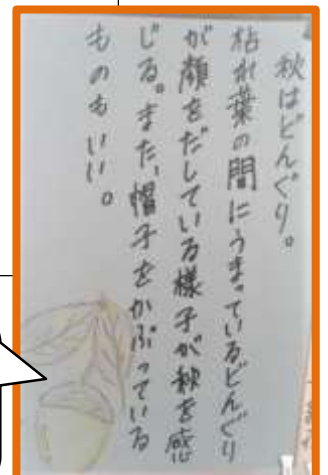 秋はどんぐり。
枯れ葉の間にうまっているどんぐり
が顔をだしている様子が秋を感
じる。また、帽子をかぶっている
ものもいい。